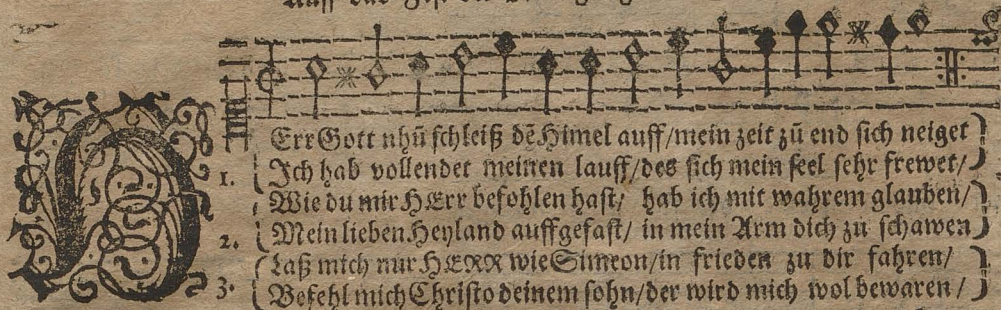 HErr Gott nhũ schleiß dẽ Himel auff/mein zeit zũ end sich neiget
1. Ich hab vollendet meinen lauff/des sich mein seel sehr frewet/
Wie du mir HErr befohlen hast/ hab ich mit wahrem glauben/
2. Mein lieben Heyland auffgefast/ in mein Arm dich zu schawen
Laß mich nur HERR wie Simeon/in frieden zu dir fahren/
3. Befehl mich Christo deinem sohn/der wird mich wol bewaren/